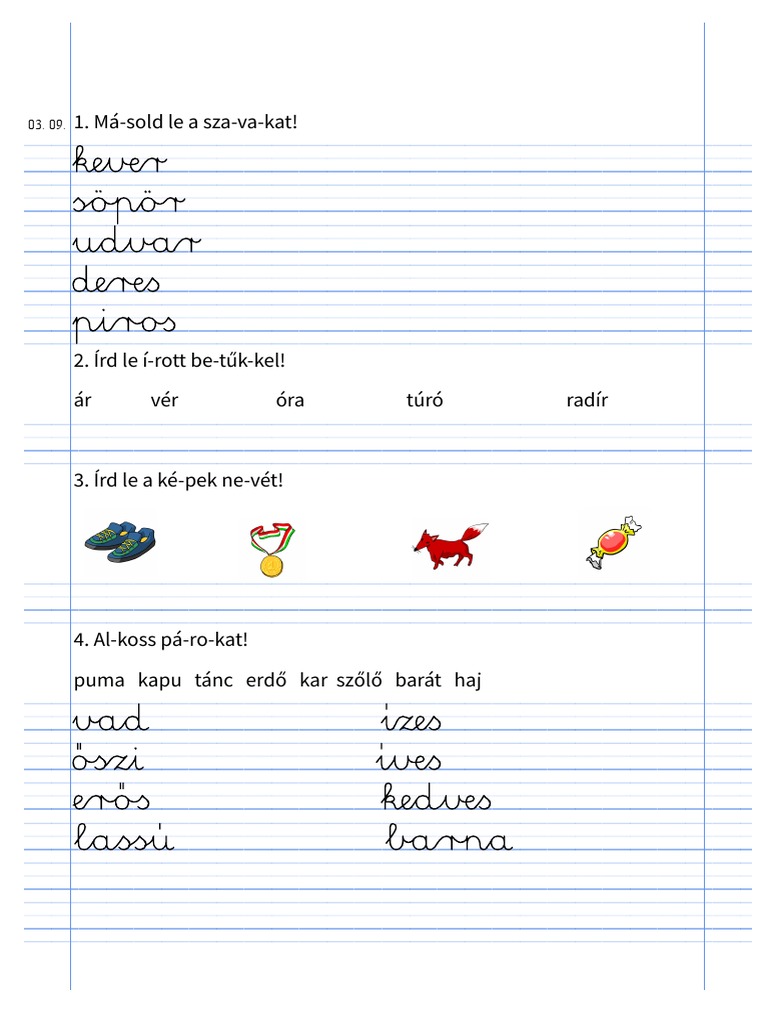 03. 09. 1. Má-sold le a sza-va-kat!
kever
söpör
udvar
deres
piros
2. Írd le í-rott be-tűk-kel!
ár vér óra túró radír
3. Írd le a ké-pek ne-vét!
4. Al-koss pá-ro-kat!
puma kapu tánc erdő kar szőlő barát haj
vad ízes
őszi íves
erős kedves
lassú barna